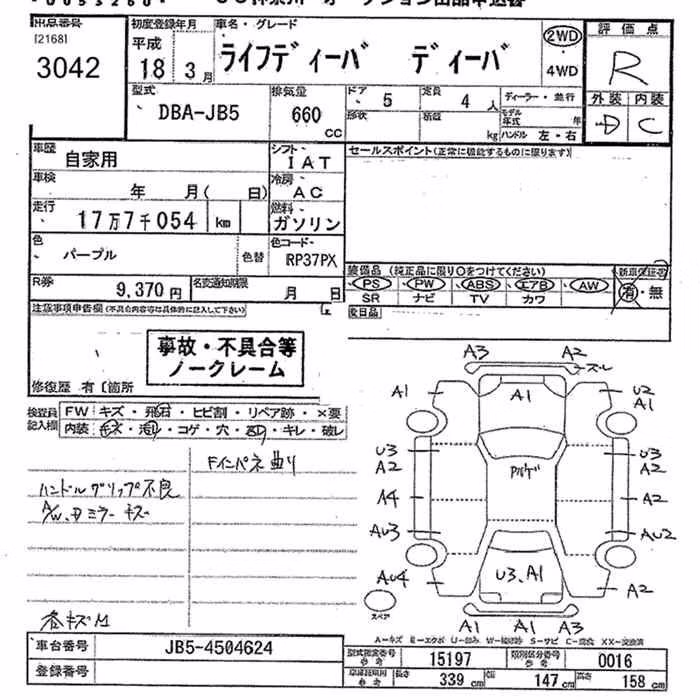 出品番号
[2168]
3042
初度登録年月
平成
18 3月
車名・グレード
ライフディーバ ディーバ
2WD
4WD
評価点
R
外装 内装
D C
型式
DBA-JB5
排気量
660
CC
ドア
5
定員
4人
ディーラー・並行
形状
積載
kg
モデル年式
年
ハンドル 左・右
車歴
自家用
シフト
IAT
セールスポイント(正常に機能するものに限ります)
車検
年 月( 日)
冷房
AC
走行
17万7千054 km
燃料
ガソリン
色
パープル
色替
色コード
RP37PX
R券
9,370円
名変通知期限
月 日
装備品 (純正品に限り○をつけてください)
PS PW ABS エアB AW
SR ナビ TV カワ
新車保証書
有・無
後日品
注意事項申告欄(不具合内容等は具体的に記入して下さい)
事故・不具合等
ノークレーム
修復歴 有〔箇所
検査員
記入欄
FW キズ・飛石・ヒビ割・リペア跡・×要
内装 キズ・汚れ・コゲ・穴・凹・キレ・破レ
Fインパネ曲り
ハンドルグリップ不良
A/W、Dミラーキズ
各キズM
A3 A2
ズレ
A1
A1
U2
A1
U3
A2
U3
A2
A4
A2
AU3
AU2
AU4
U3、A1
A2
スペア
A1 A1 A3
車台番号
JB5-4504624
登録番号
型式指定番号
参考
15197
類別区分番号
参考
0016
長さ
339 cm
幅
147 cm
高さ
158 cm